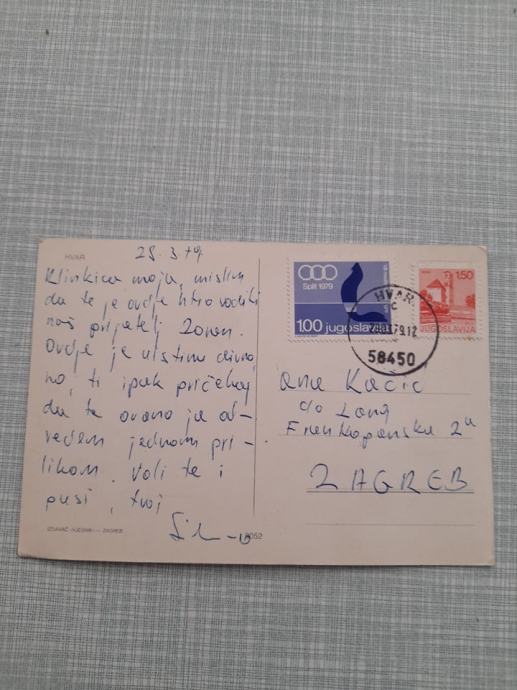 HVAR
Split 1979
1,00 jugoslavija
1,50
JUGOSLAVIJA
HVAR
C
79.12
58450
moja, mislim
da te je ovdje htio voditi
naš prijatelj Zoran.
Ovdje je uistinu divno,
no, ti ipak pričekaj
da te ovamo ja od-
vedem jednom pri-
likom. Voli te i
pusi, tvoj
Ana Kačić
do Lang
Frankopanska 2a
ZAGREB
IZDAVAČ »VJESNIK« — ZAGREB